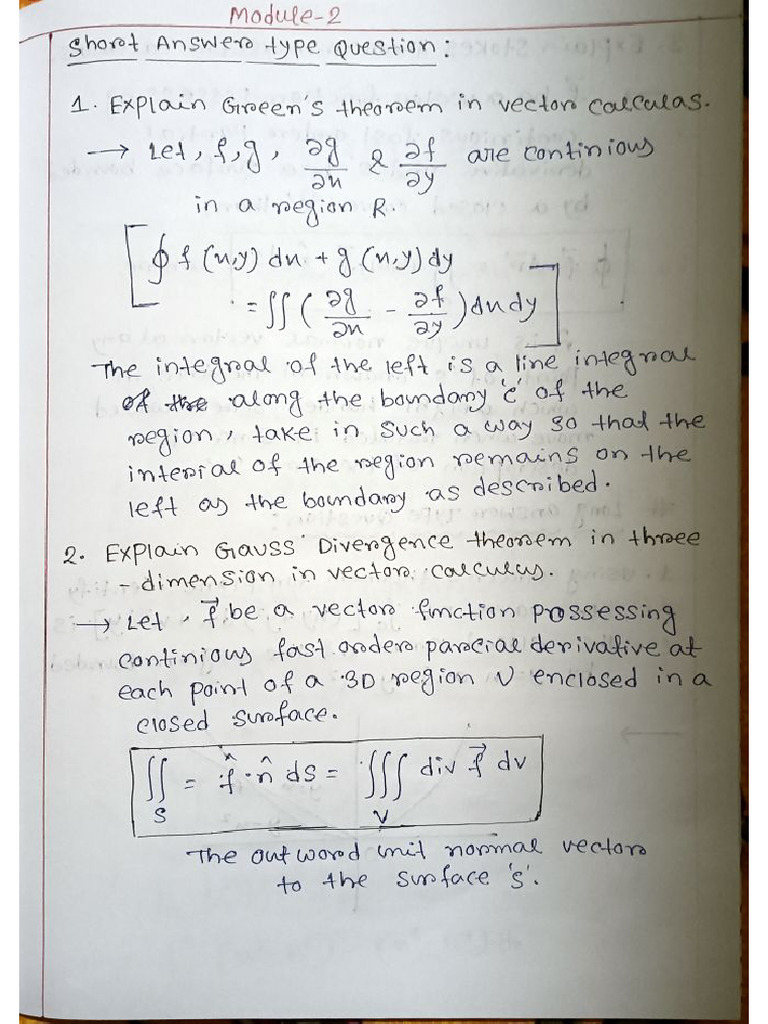 Module-2
Short Answer type Question:
1. Explain Green's theorem in vector calculas.
→ Let, f, g, ∂g/∂x & ∂f/∂y are continious
in a region R.
∮ f (x,y) dx + g (x,y) dy
= ∬ ( ∂g/∂x - ∂f/∂y ) dx dy
The integral of the left is a line integral
of the along the boundary 'c' of the
region, take in such a way so that the
interial of the region remains on the
left as the boundary as described.
2. Explain Gauss Divergence theorem in three
-dimension in vector calculus.
→ Let, f⃗ be a vector function prossessing
continious fast order parcial derivative at
each point of a 3D region V enclosed in a
closed surface.
∬_S = f̂ · n̂ ds = ∭_V div f⃗ dv
The outword unit normal vector
to the surface 's'.